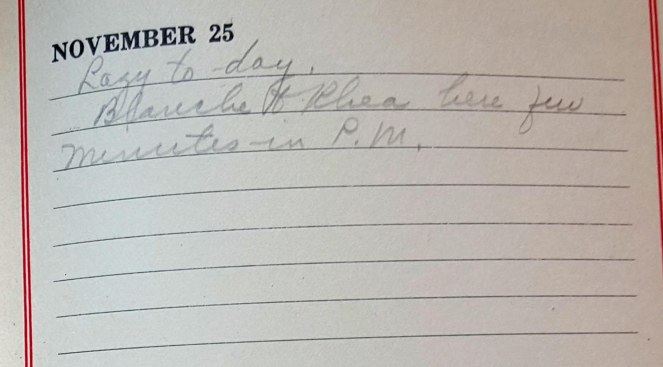 NOVEMBER 25
Lazy to-day.
Blanche & Rhea here few
minutes in P.M.